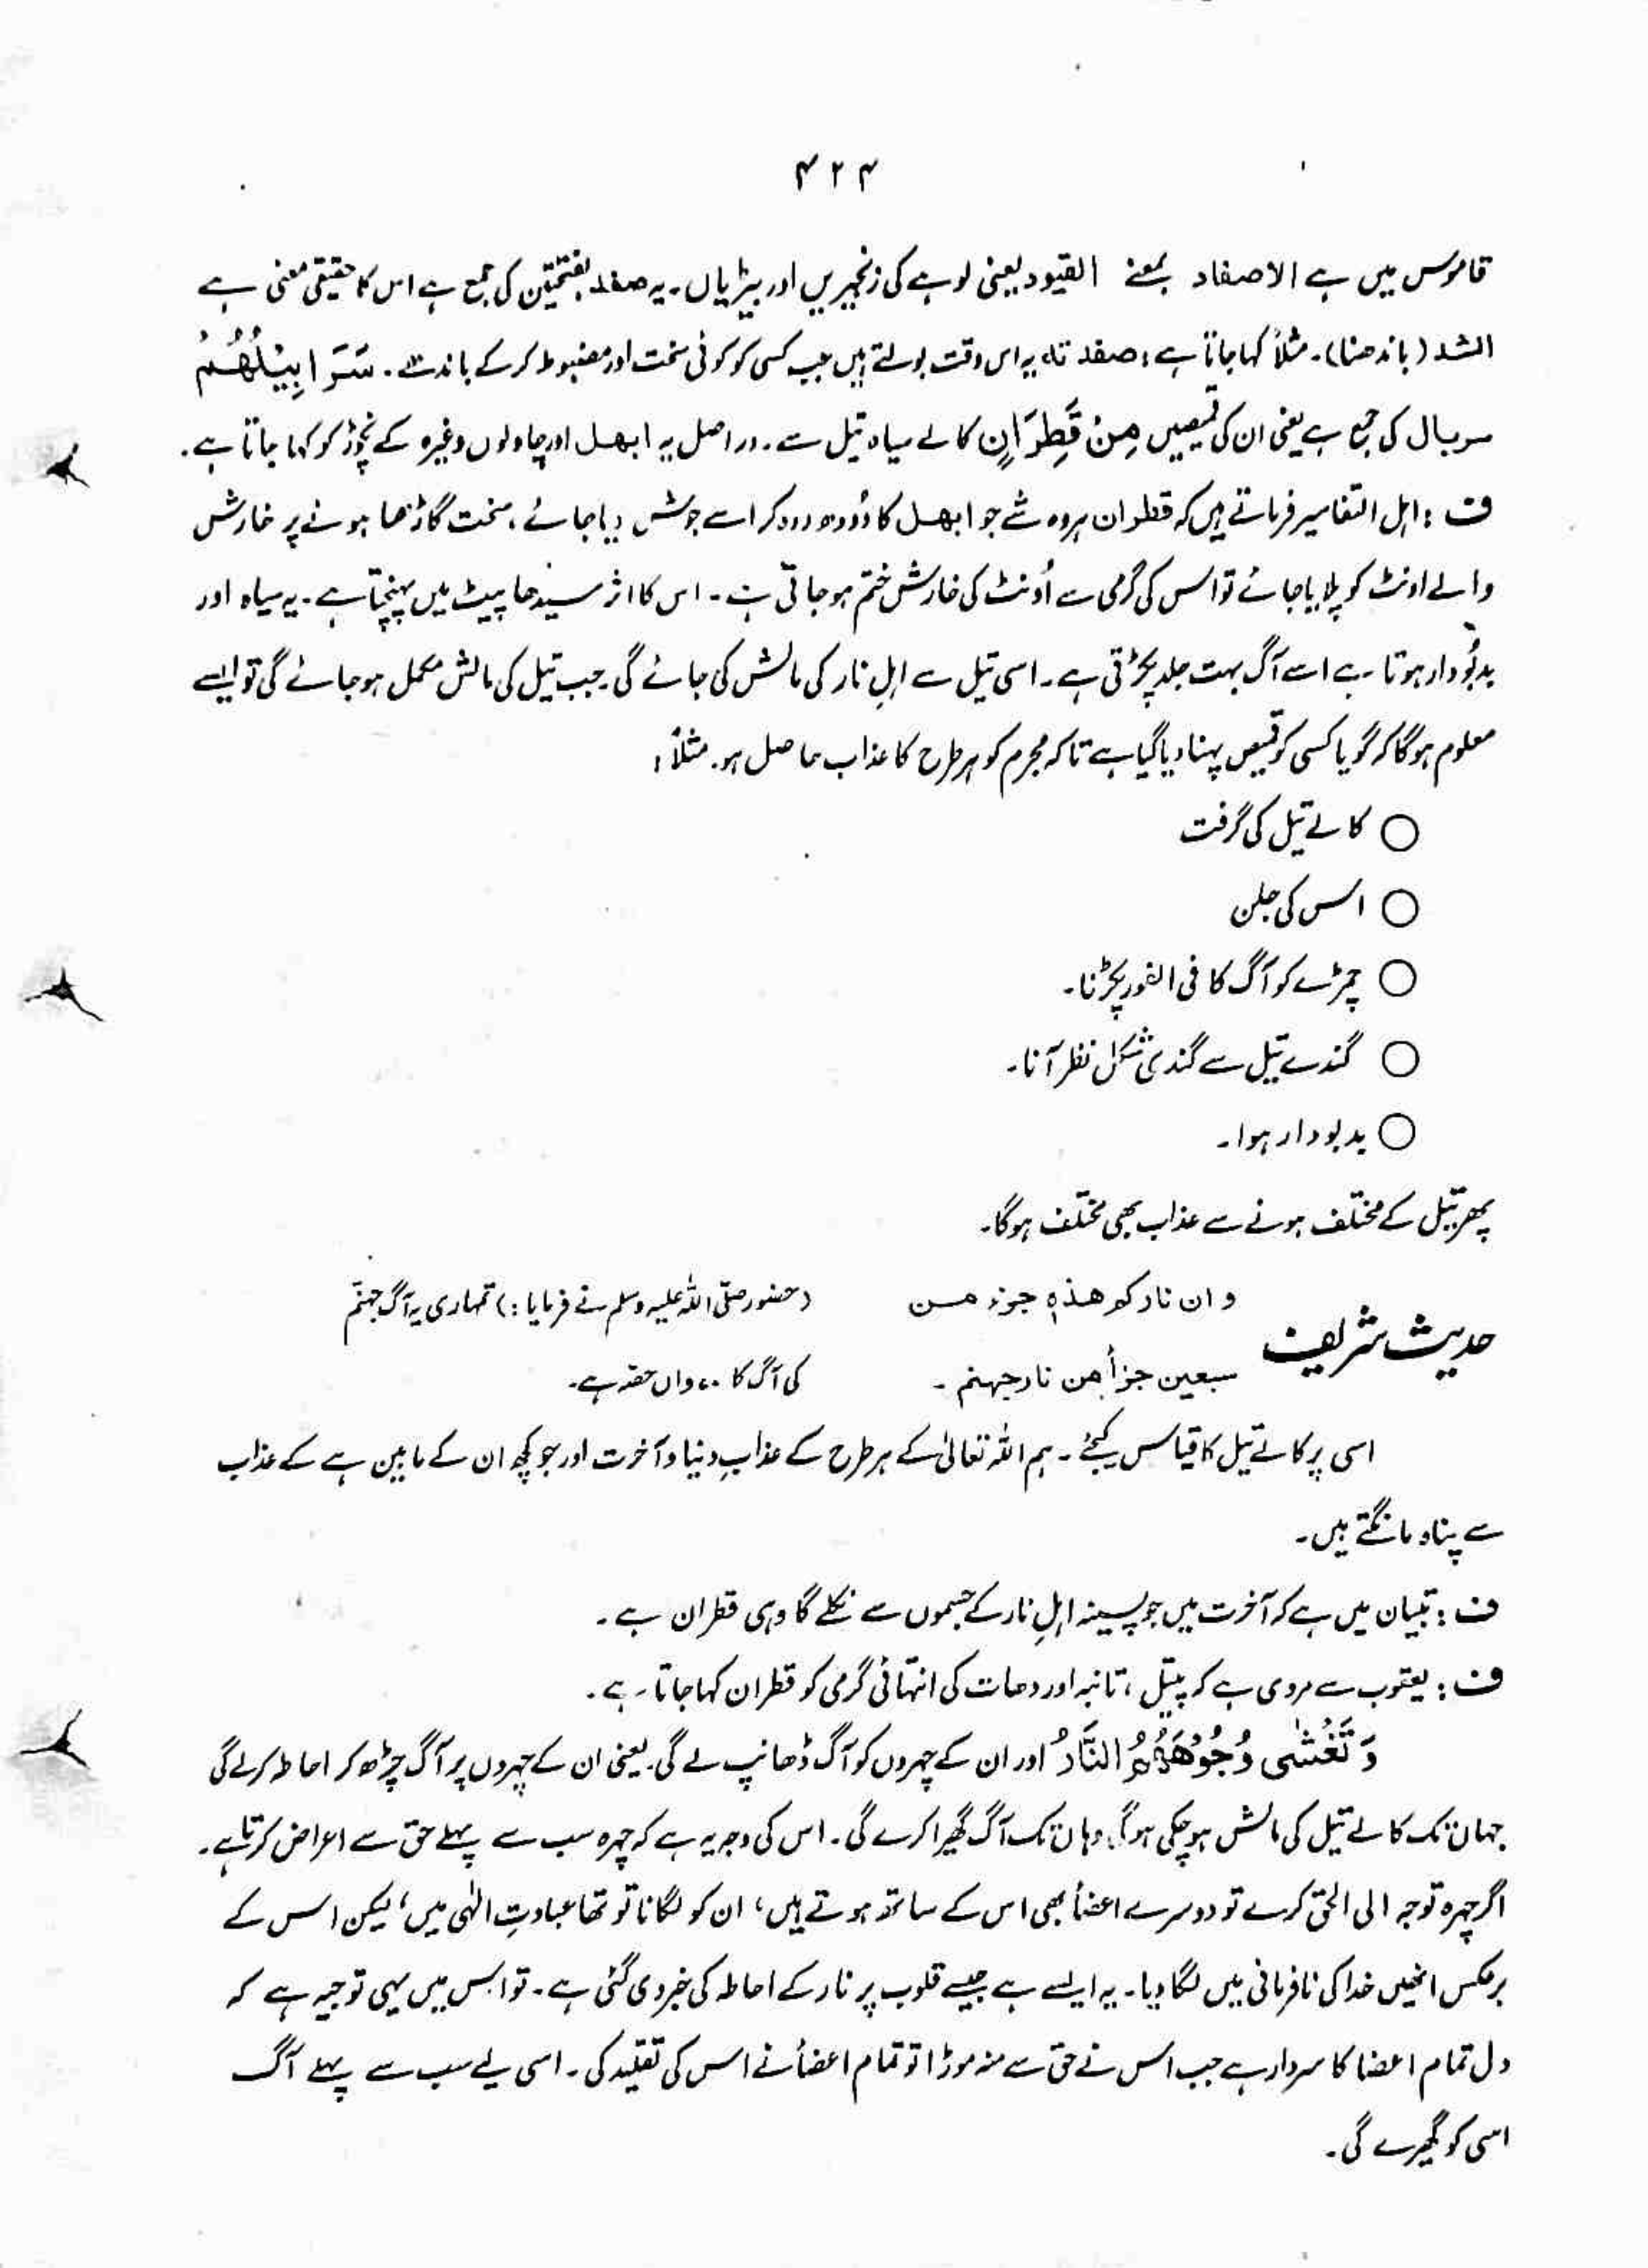 ۴۲۴
قاموس میں ہے الاصفاد بمعنے القیود یعنی لوہے کی زنجیریں اور بیڑیاں۔ یہ صفد بفتحتین کی جمع ہے اس کا حقیقی معنی ہے
الشد (باندھنا)۔ مثلاً کہا جاتا ہے: صفد تہ یہ اس وقت بولتے ہیں جب کسی کو کوئی سخت اور مضبوط کر کے باندھے۔ سَرَابِیْلُھُمْ
سربال کی جمع ہے یعنی ان کی قمیصیں مِنْ قَطِرَانٍ کالے سیاہ تیل سے۔ دراصل یہ ابھل اور چاولوں وغیرہ کے نچوڑ کو کہا جاتا ہے۔
ف : اہل التفاسیر فرماتے ہیں کہ قطران ہر وہ شے جو ابھل کا دُودھ دوہ کر اسے جوش دیا جائے، سخت گاڑھا ہونے پر خارش
والے اونٹ کو پلایا جائے تو اس کی گرمی سے اُونٹ کی خارش ختم ہو جاتی ہے۔ اس کا اثر سیدھا پیٹ میں پہنچتا ہے۔ یہ سیاہ اور
بدبُو دار ہوتا ہے اسے آگ بہت جلد پکڑتی ہے۔ اسی تیل سے اہلِ نار کی مالش کی جائے گی جب تیل کی مالش مکمل ہو جائے گی تو ایسے
معلوم ہوگا کہ گویا کسی کو قمیص پہنا دیا گیا ہے تاکہ مجرم کو ہر طرح کا عذاب حاصل ہو۔ مثلاً :
○ کالے تیل کی گرفت
○ اس کی جلن
○ چمڑے کو آگ کا فی الفور پکڑنا۔
○ گندے تیل سے گندی شکل نظر آنا۔
○ بدبودار ہوا۔
پھر تیل کے مختلف ہونے سے عذاب بھی مختلف ہوگا۔
حدیث شریف وان نارکم ھذہٖ جزء من (حضور صلّی اللہ علیہ وسلم نے فرمایا :) تمہاری یہ آگ جہنّم
سبعین جزأ من نار جہنم ۔ کی آگ کا ۷۰ واں حصّہ ہے۔
اسی پر کالے تیل کا قیاس کیجئے۔ ہم اللہ تعالیٰ کے ہر طرح کے عذابِ دنیا و آخرت اور جو کچھ ان کے مابین ہے کے عذاب
سے پناہ مانگتے ہیں۔
ف : تبیان میں ہے کہ آخرت میں جو پسینہ اہلِ نار کے جسموں سے نکلے گا وہی قطران ہے۔
ف : یعقوب سے مروی ہے کہ پیتل، تانبہ اور دھات کی انتہائی گرمی کو قطران کہا جاتا ہے۔
وَ تَغْشٰی وُجُوْھَھُمُ النَّارُ اور ان کے چہروں کو آگ ڈھانپ لے گی۔ یعنی ان کے چہروں پر آگ چڑھ کر احاطہ کر لے گی
جہاں تک کالے تیل کی مالش ہو چکی ہوگی وہاں تک آگ گھیرا کرے گی۔ اس کی وجہ یہ ہے کہ چہرہ سب سے پہلے حق سے اعراض کرتا ہے۔
اگر چہرہ توجہ الی الحق کرے تو دوسرے اعضأ بھی اس کے ساتھ ہوتے ہیں، ان کو لگانا تو تھا عبادتِ الٰہی میں، لیکن اس کے
برعکس انھیں خدا کی نافرمانی میں لگا دیا۔ یہ ایسے ہے جیسے قلوب پر نار کے احاطہ کی خبر دی گئی ہے۔ تو اس میں یہی توجیہ ہے کہ
دل تمام اعضا کا سردار ہے جب اس نے حق سے منہ موڑا تو تمام اعضأ نے اس کی تقلید کی۔ اسی لیے سب سے پہلے آگ
اسی کو گھیرے گی۔